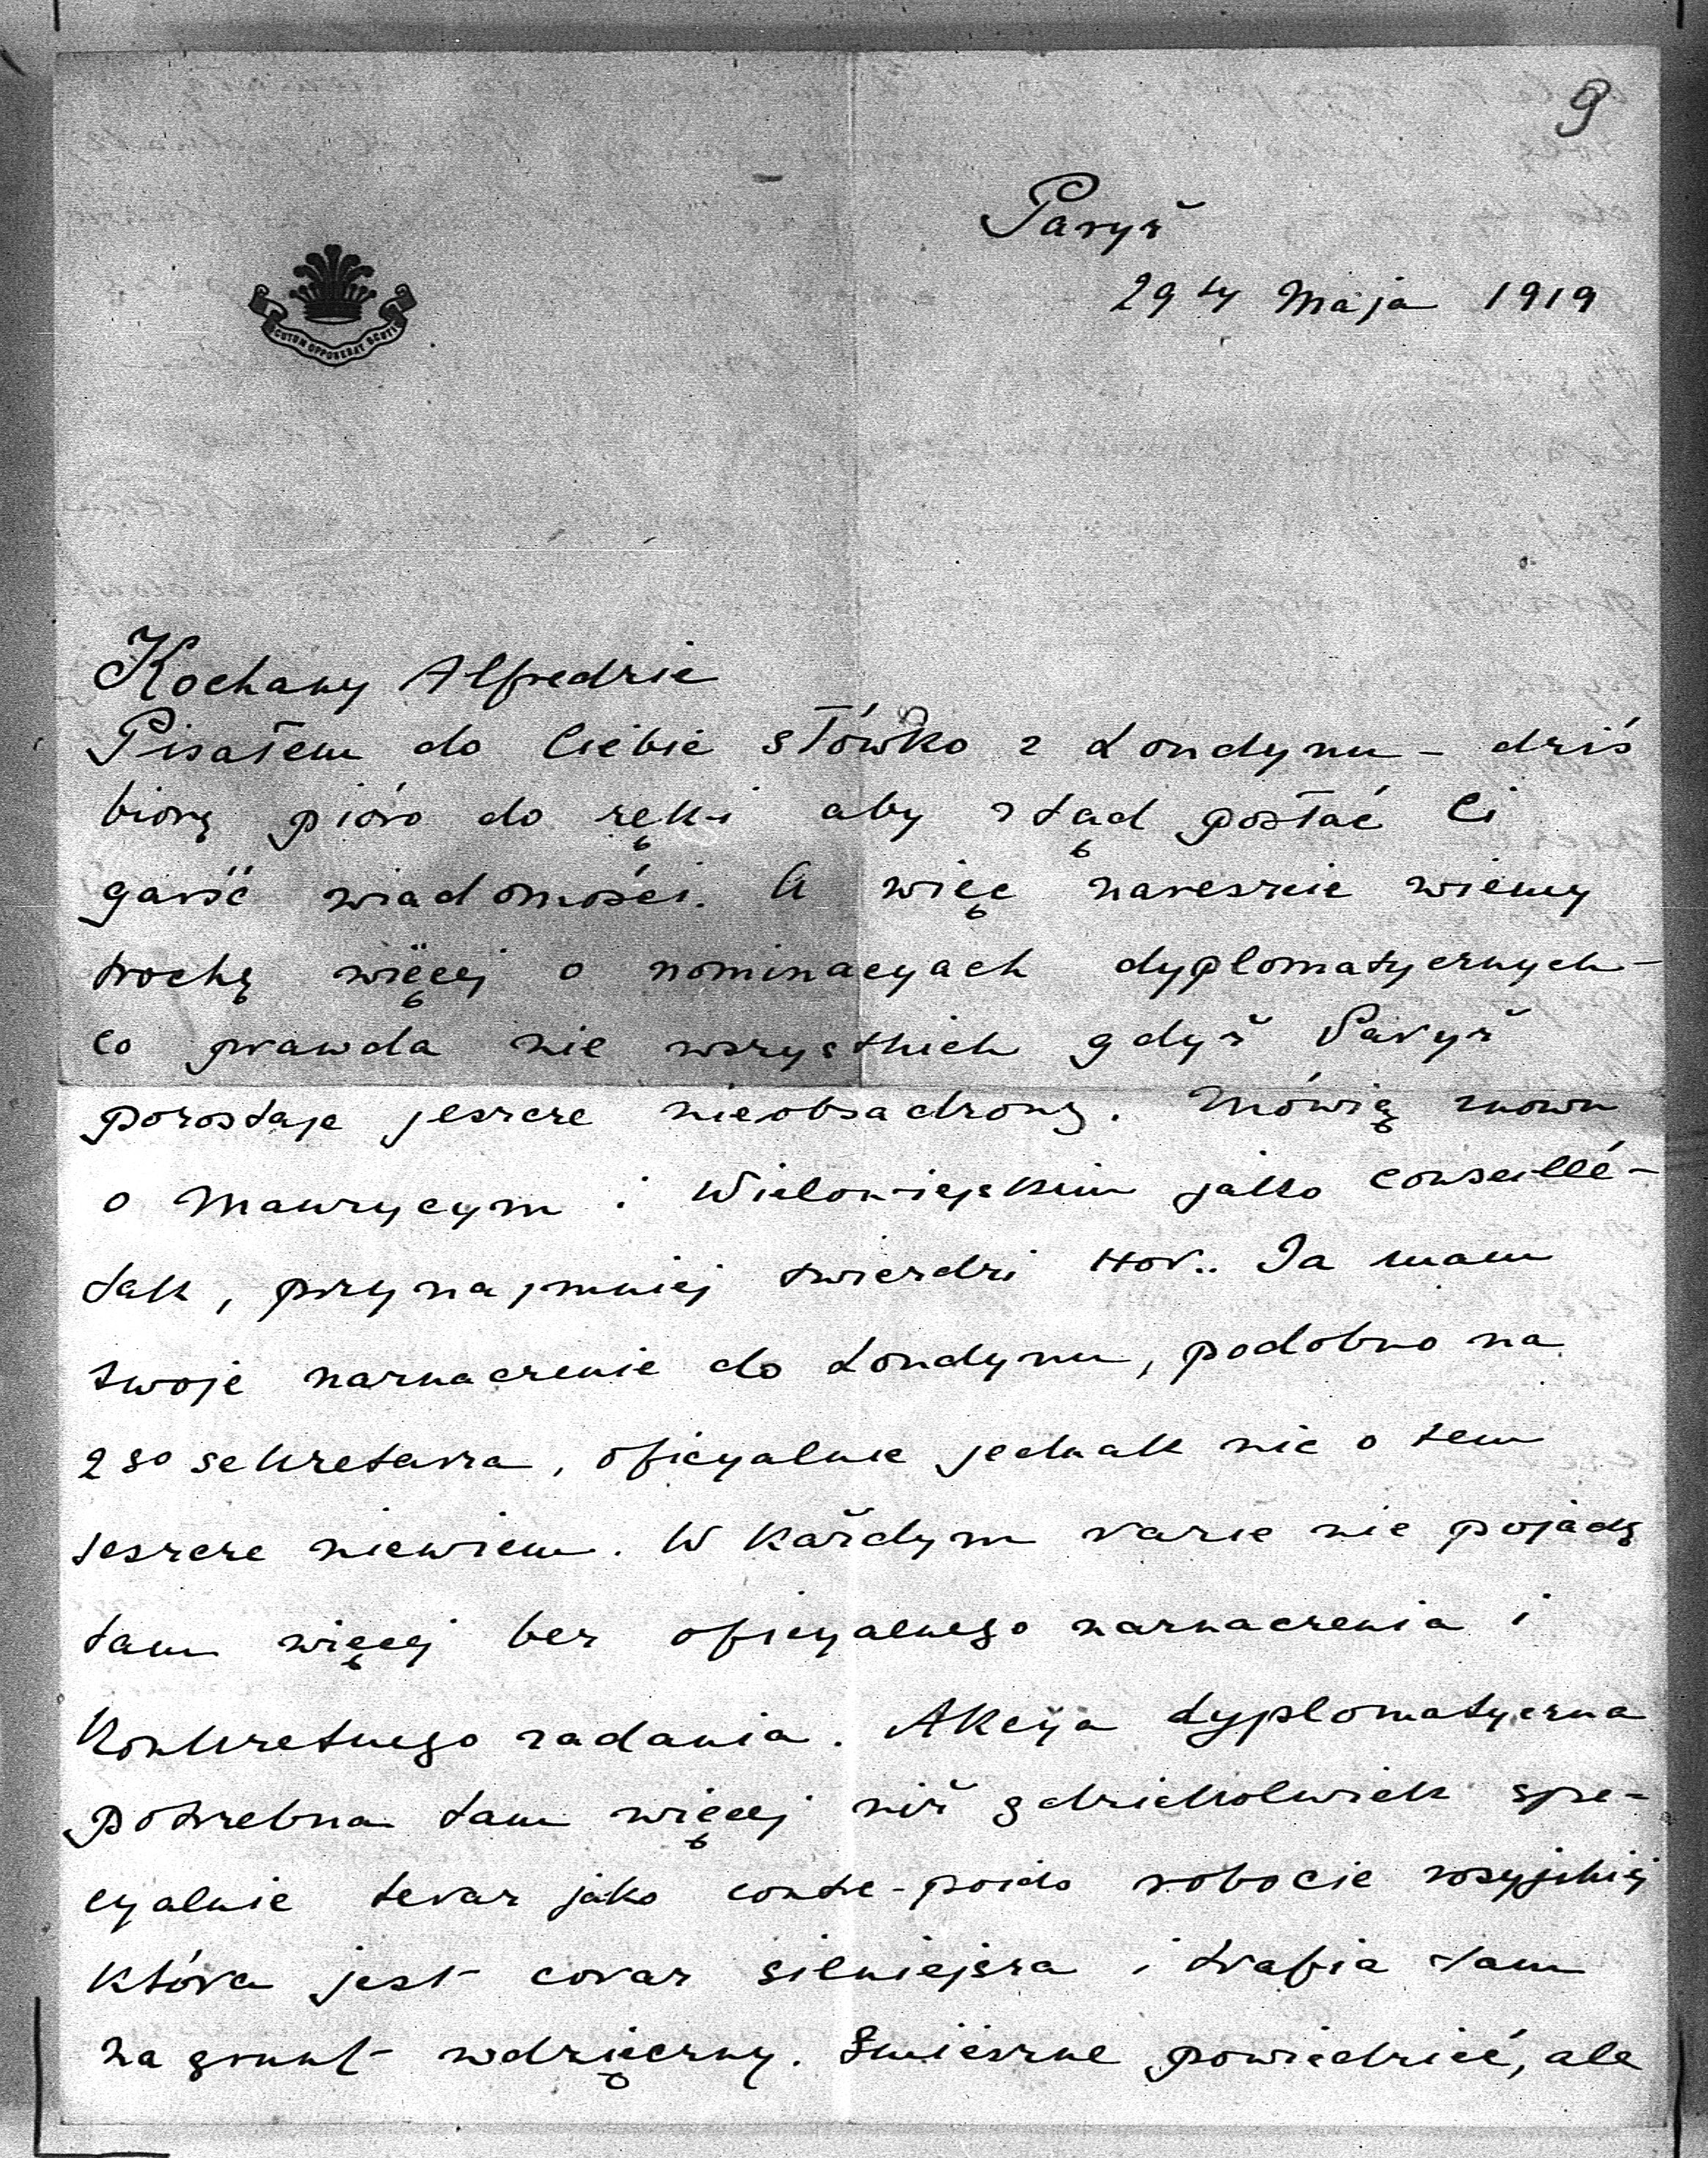 9
Paryż
29ty Maja 1919
SCUTUM OPPONEBAT SCUTIS
Kochany Alfredzie
Pisałem do Ciebie słówko z Londynu - dziś
biorę pióro do ręki aby ztąd posłać Ci
garść wiadomości. A więc nareszcie wiemy
trochę więcej o nominacyach dyplomatycznych -
co prawda nie wszystkich gdyż Paryż
pozostaje jeszcze nieobsadzony. Mówią znowu
o Maurycym i Wielowiejskim jako conseillé -
tak, przynajmniej twierdzi Hor.. Ja mam
swoje naznaczenie do Londynu, podobno na
2go sekretarza, oficyalnie jednak nic o tem
jeszcze niewiem. W każdym razie nie pojadę
tam więcej bez oficyalnego naznaczenia i
konkretnego zadania. Akcya dyplomatyczna
potrzebna tam więcej niż gdziekolwiek spe-
cyalnie teraz jako contre-poids robocie rosyjskiej
która jest coraz silniejsza i trafia tam
na grunt wdzięczny. Śmieszne powiedzieć, ale